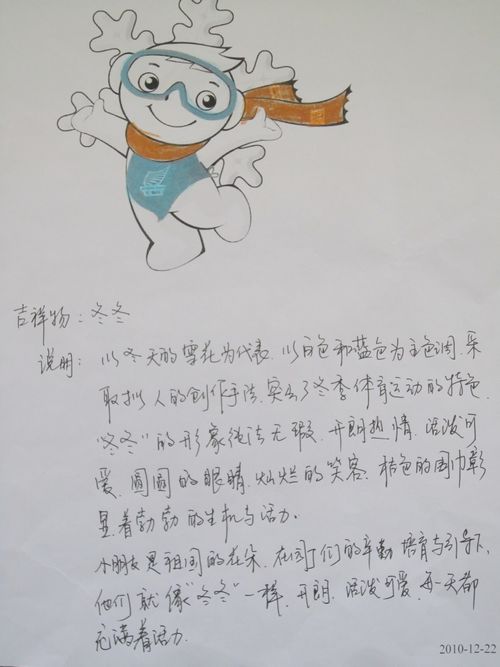 吉祥物：冬冬
说明：以冬天的雪花为代表.以白色和蓝色为主色调.采
取拟人的创作手法.突出了冬季体育运动的特色.
“冬冬”的形象纯洁无瑕.开朗热情.活泼可
爱.圆圆的眼睛.灿烂的笑容.桔色的围巾彰
显着勃勃的生机与活力.
小朋友是祖国的花朵.在园丁们的辛勤培育与引导下,
他们就像“冬冬”一样.开朗.活泼可爱.每一天都
充满着活力.
2010-12-22